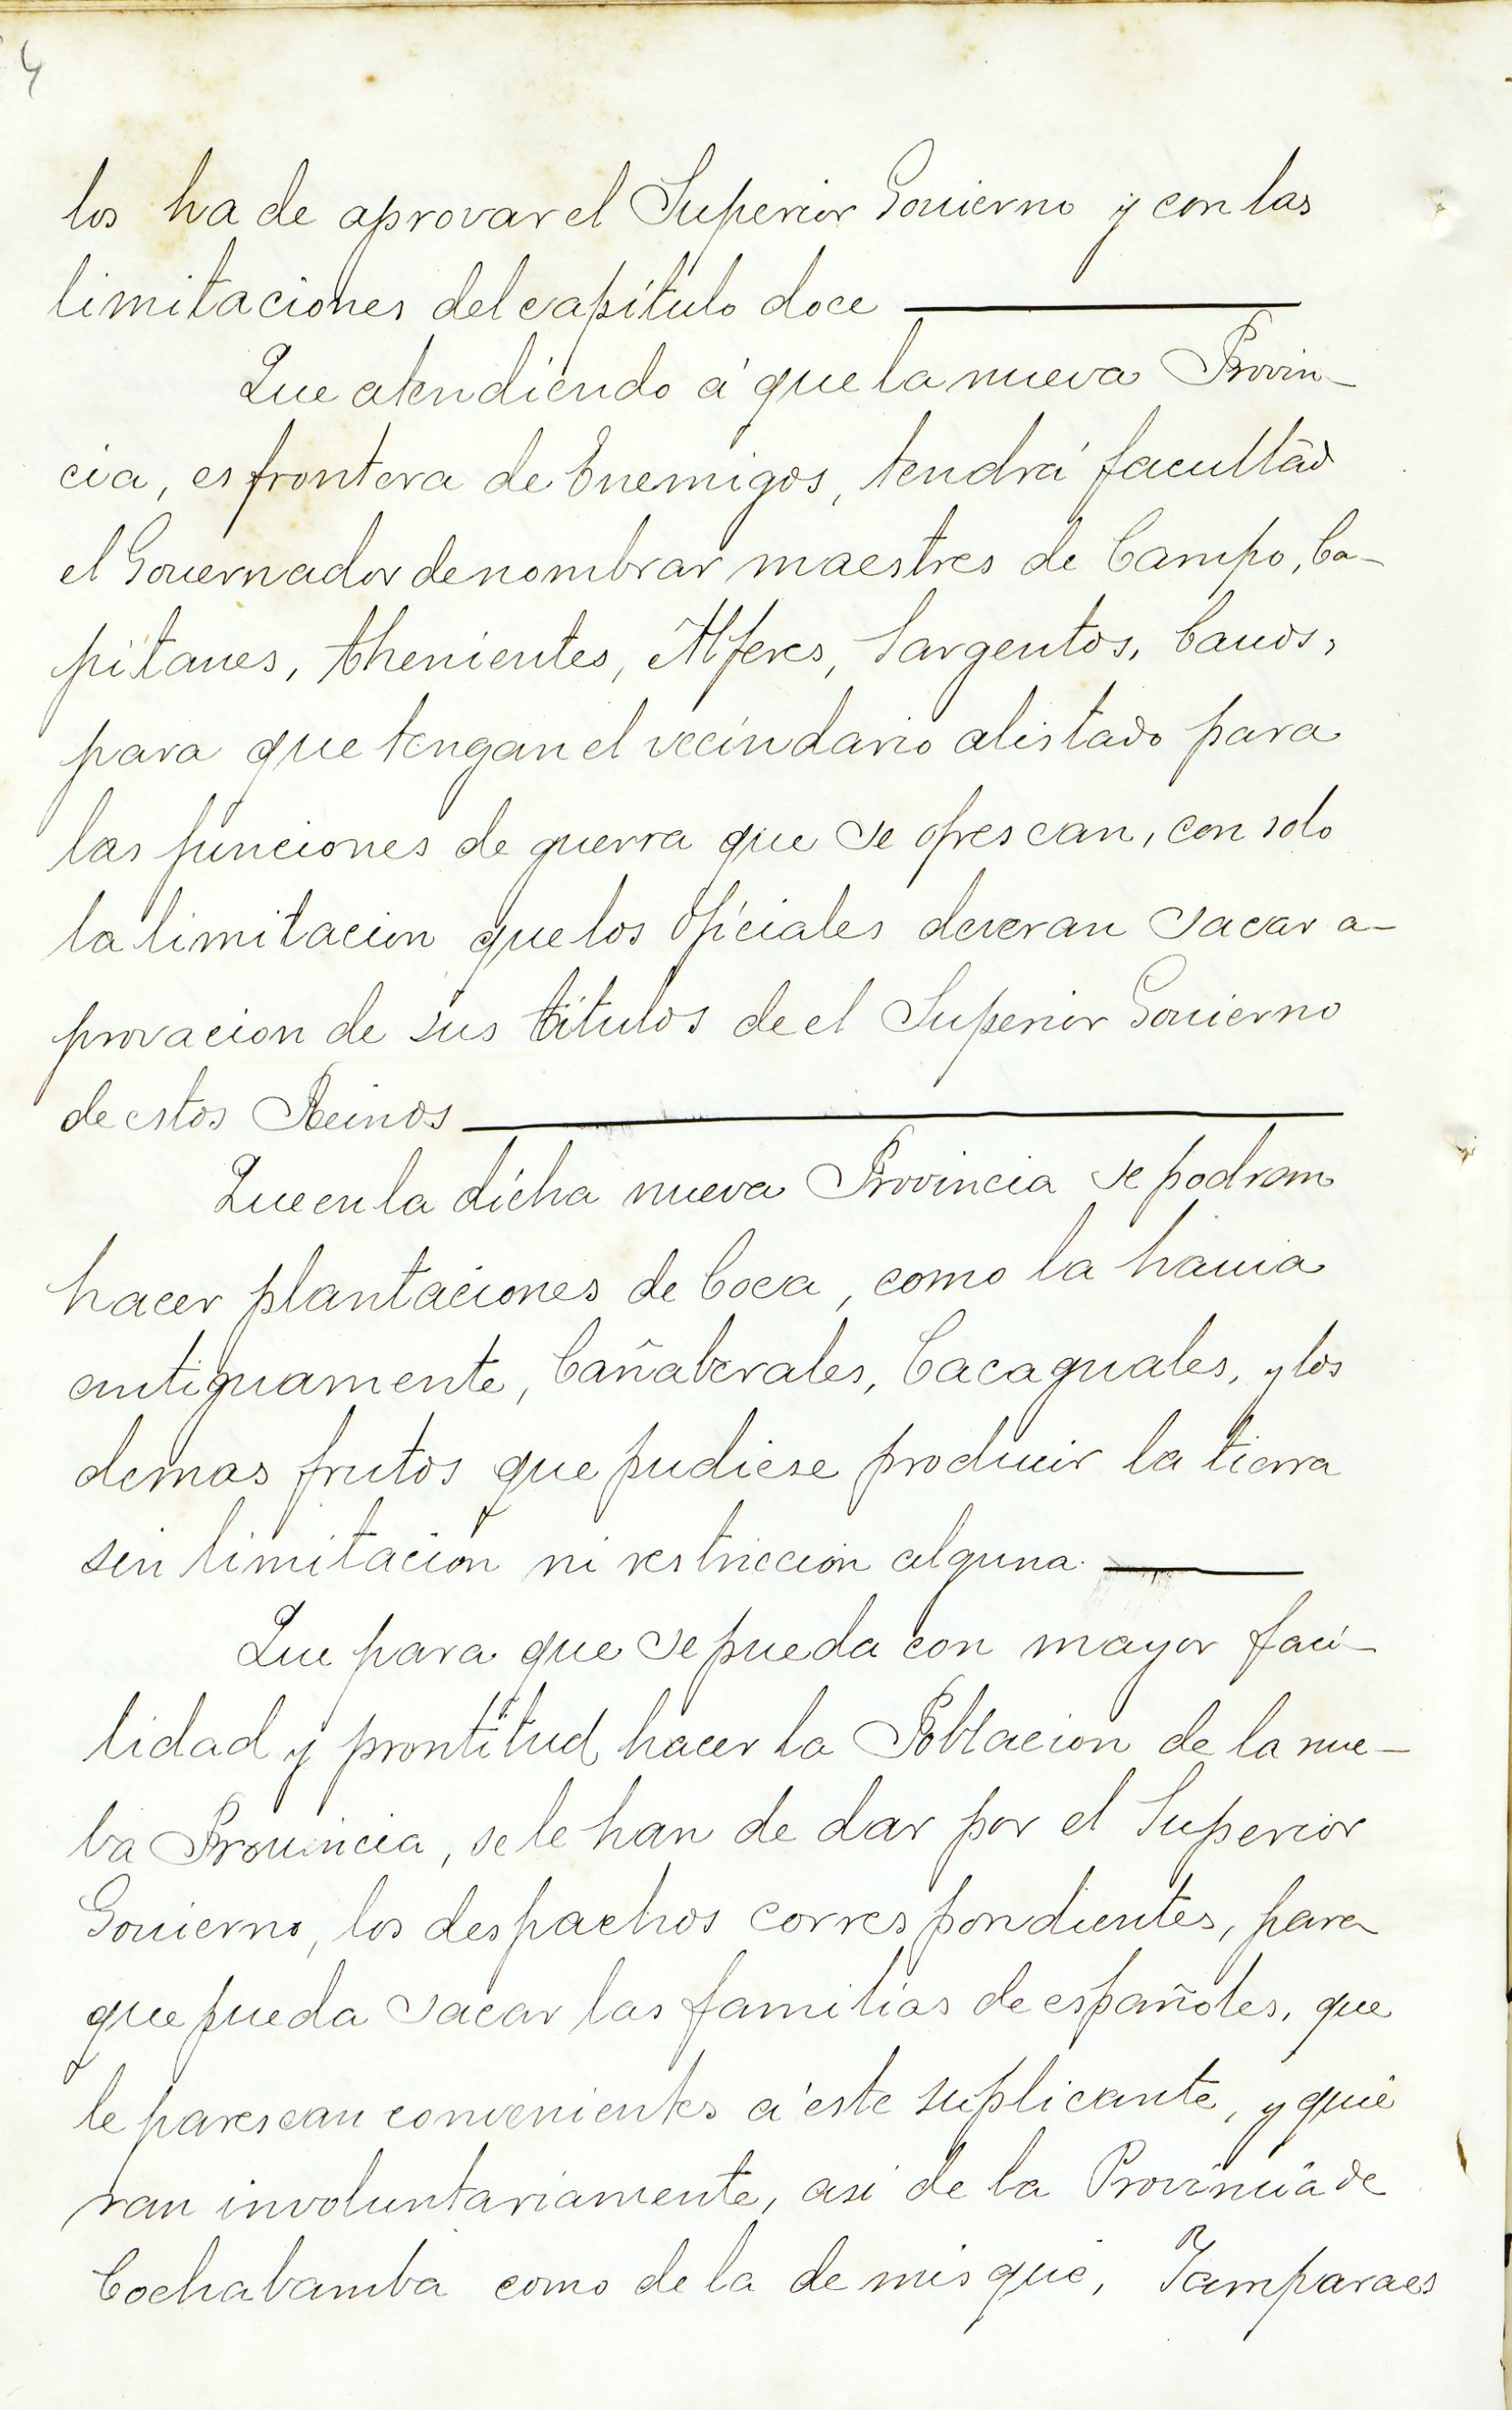 4
los ha de aprovar el Superior Gouierno y con las
limitaciones del capítulo doce
Que atendiendo á que la nueva Provin-
cia, es frontera de Enemigos, tendrá facultad
el Gouernador de nombrar maestres de Campo, Ca-
pitanes, thenientes, Alferes, Sargentos, Cauos,
para que tengan el vecindario alistado para
las funciones de guerra que se ofrescan, con solo
la limitacion que los Oficiales deveran sacar a-
provacion de sus títulos de el Superior Gouierno
de estos Reinos
Que en la dicha nueva Provincia se podran
hacer plantaciones de Coca, como la hauia
antiguamente, Cañaberales, Cacaguales, y los
demas frutos que pudiese producir la tierra
sin limitacion ni restriccion alguna.
Que para que se pueda con mayor faci-
lidad y prontitud hacer la Poblacion de la nue-
ba Prouincia, se le han de dar por el Superior
Gouierno, los despachos correspondientes, para
que pueda sacar las familias de españoles, que
le parescan convenientes á este suplicante, y quie
ran involuntariamente, asi de la Provincia de
Cochabamba como de la de misque, Yamparaes